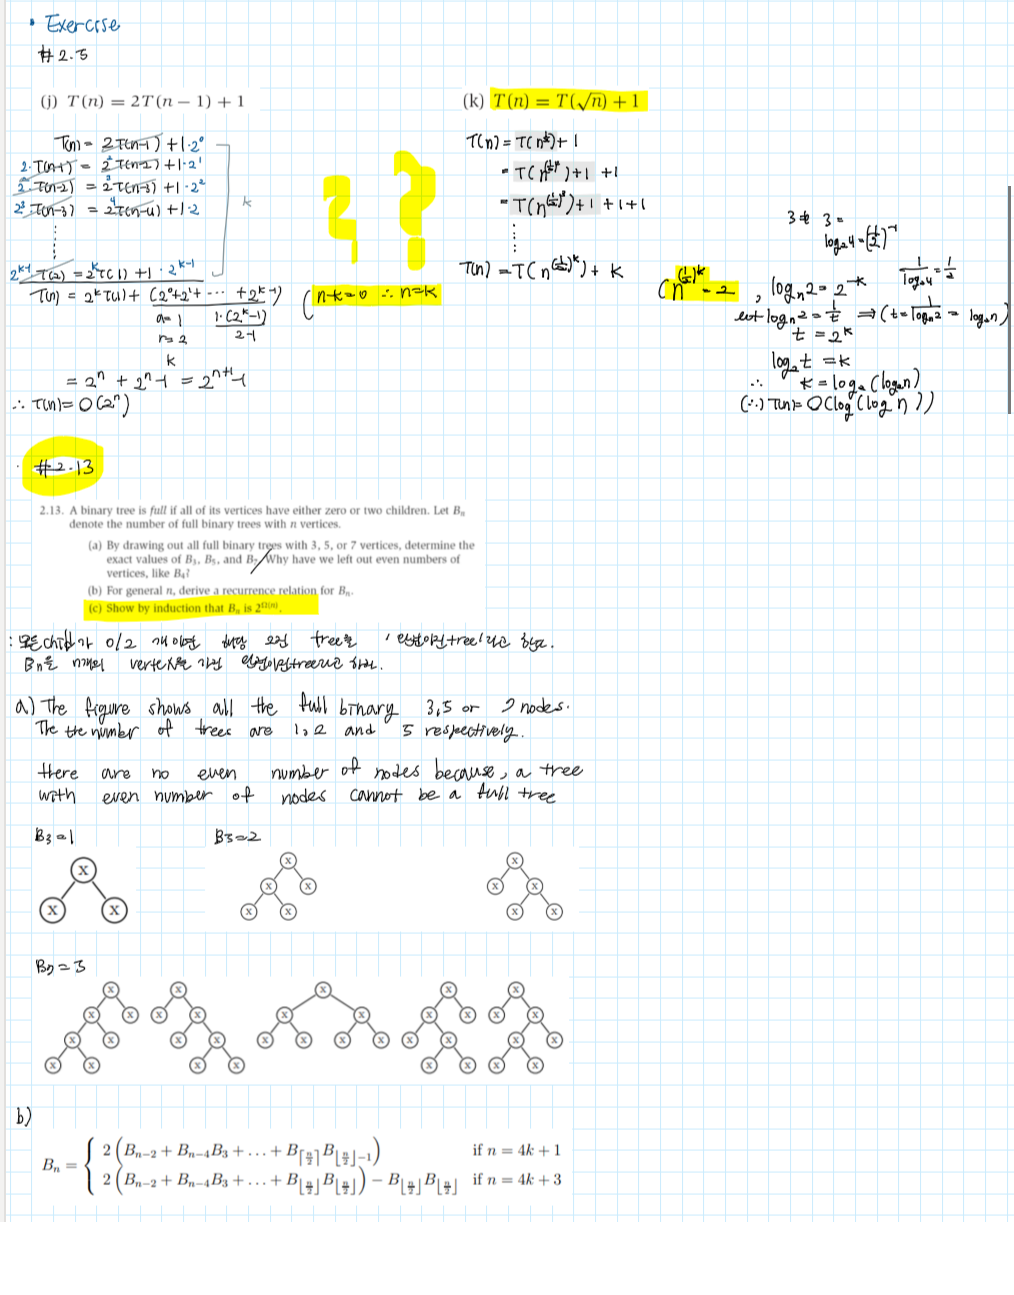 • Exercise
# 2.5
(j) T(n) = 2T(n − 1) + 1
T(n) = 2T(n-1) + 1·2⁰
2·T(n-1) = 2²T(n-2) + 1·2¹
2²·T(n-2) = 2³T(n-3) + 1·2²
2³·T(n-3) = 2⁴T(n-4) + 1·2
k
2ᵏ⁻¹ T(2) = 2ᵏT(1) + 1·2ᵏ⁻¹
T(n) = 2ᵏT(1) + (2⁰+2¹+ ··· +2ᵏ⁻¹)
( n-k=0 ∴ n=k
a=1
r=2
k
1·(2ᵏ-1)
2-1
= 2ⁿ + 2ⁿ-1 = 2ⁿ⁺¹-1
∴ T(n) = O(2ⁿ)
? ?
(k) T(n) = T(√n) + 1
T(n) = T(n^½) + 1
= T(n^(½)²) + 1 + 1
= T(n^(½)³) + 1 + 1 + 1
T(n) = T(n^(½)^k) + k
(n^(½)^k = 2 , logₙ2 = 2⁻ᵏ
let logₙ2 = 1/t ⇒ (t = 1/logₙ2 = log₂n)
t = 2ᵏ
log₂t = k
∴ k = log₂(log₂n)
(∴) T(n) = O(log(log n))
log₂4 = (½)⁻¹
1/log₂4 = 1/2
#2.13
2.13. A binary tree is full if all of its vertices have either zero or two children. Let Bₙ
denote the number of full binary trees with n vertices.
(a) By drawing out all full binary trees with 3, 5, or 7 vertices, determine the
exact values of B₃, B₅, and B₇. Why have we left out even numbers of
vertices, like B₄?
(b) For general n, derive a recurrence relation for Bₙ.
(c) Show by induction that Bₙ is 2^Ω(n).
: 모든 child가 0/2 개이면 해당 tree를 완전이진tree라고 한다.
Bn을 n개의 vertex를 가진 완전이진tree라고 하자.
a) The figure shows all the full binary 3,5 or 7 nodes.
The the number of trees are 1, 2 and 5 respectively.
there are no even number of nodes because, a tree
with even number of nodes cannot be a full tree
B3=1 B5=2
X X X X X X X X X X X X X
B7=5
X X X X X X X X X X X X X X X X X X X X X X X X X X X X X X X X X X X
b)
Bₙ = { 2(Bₙ₋₂ + Bₙ₋₄B₃ + … + B⌈n/2⌉B⌊n/2⌋−1) if n = 4k + 1
2(Bₙ₋₂ + Bₙ₋₄B₃ + … + B⌊n/2⌋B⌊n/2⌋) − B⌊n/2⌋B⌊n/2⌋ if n = 4k + 3